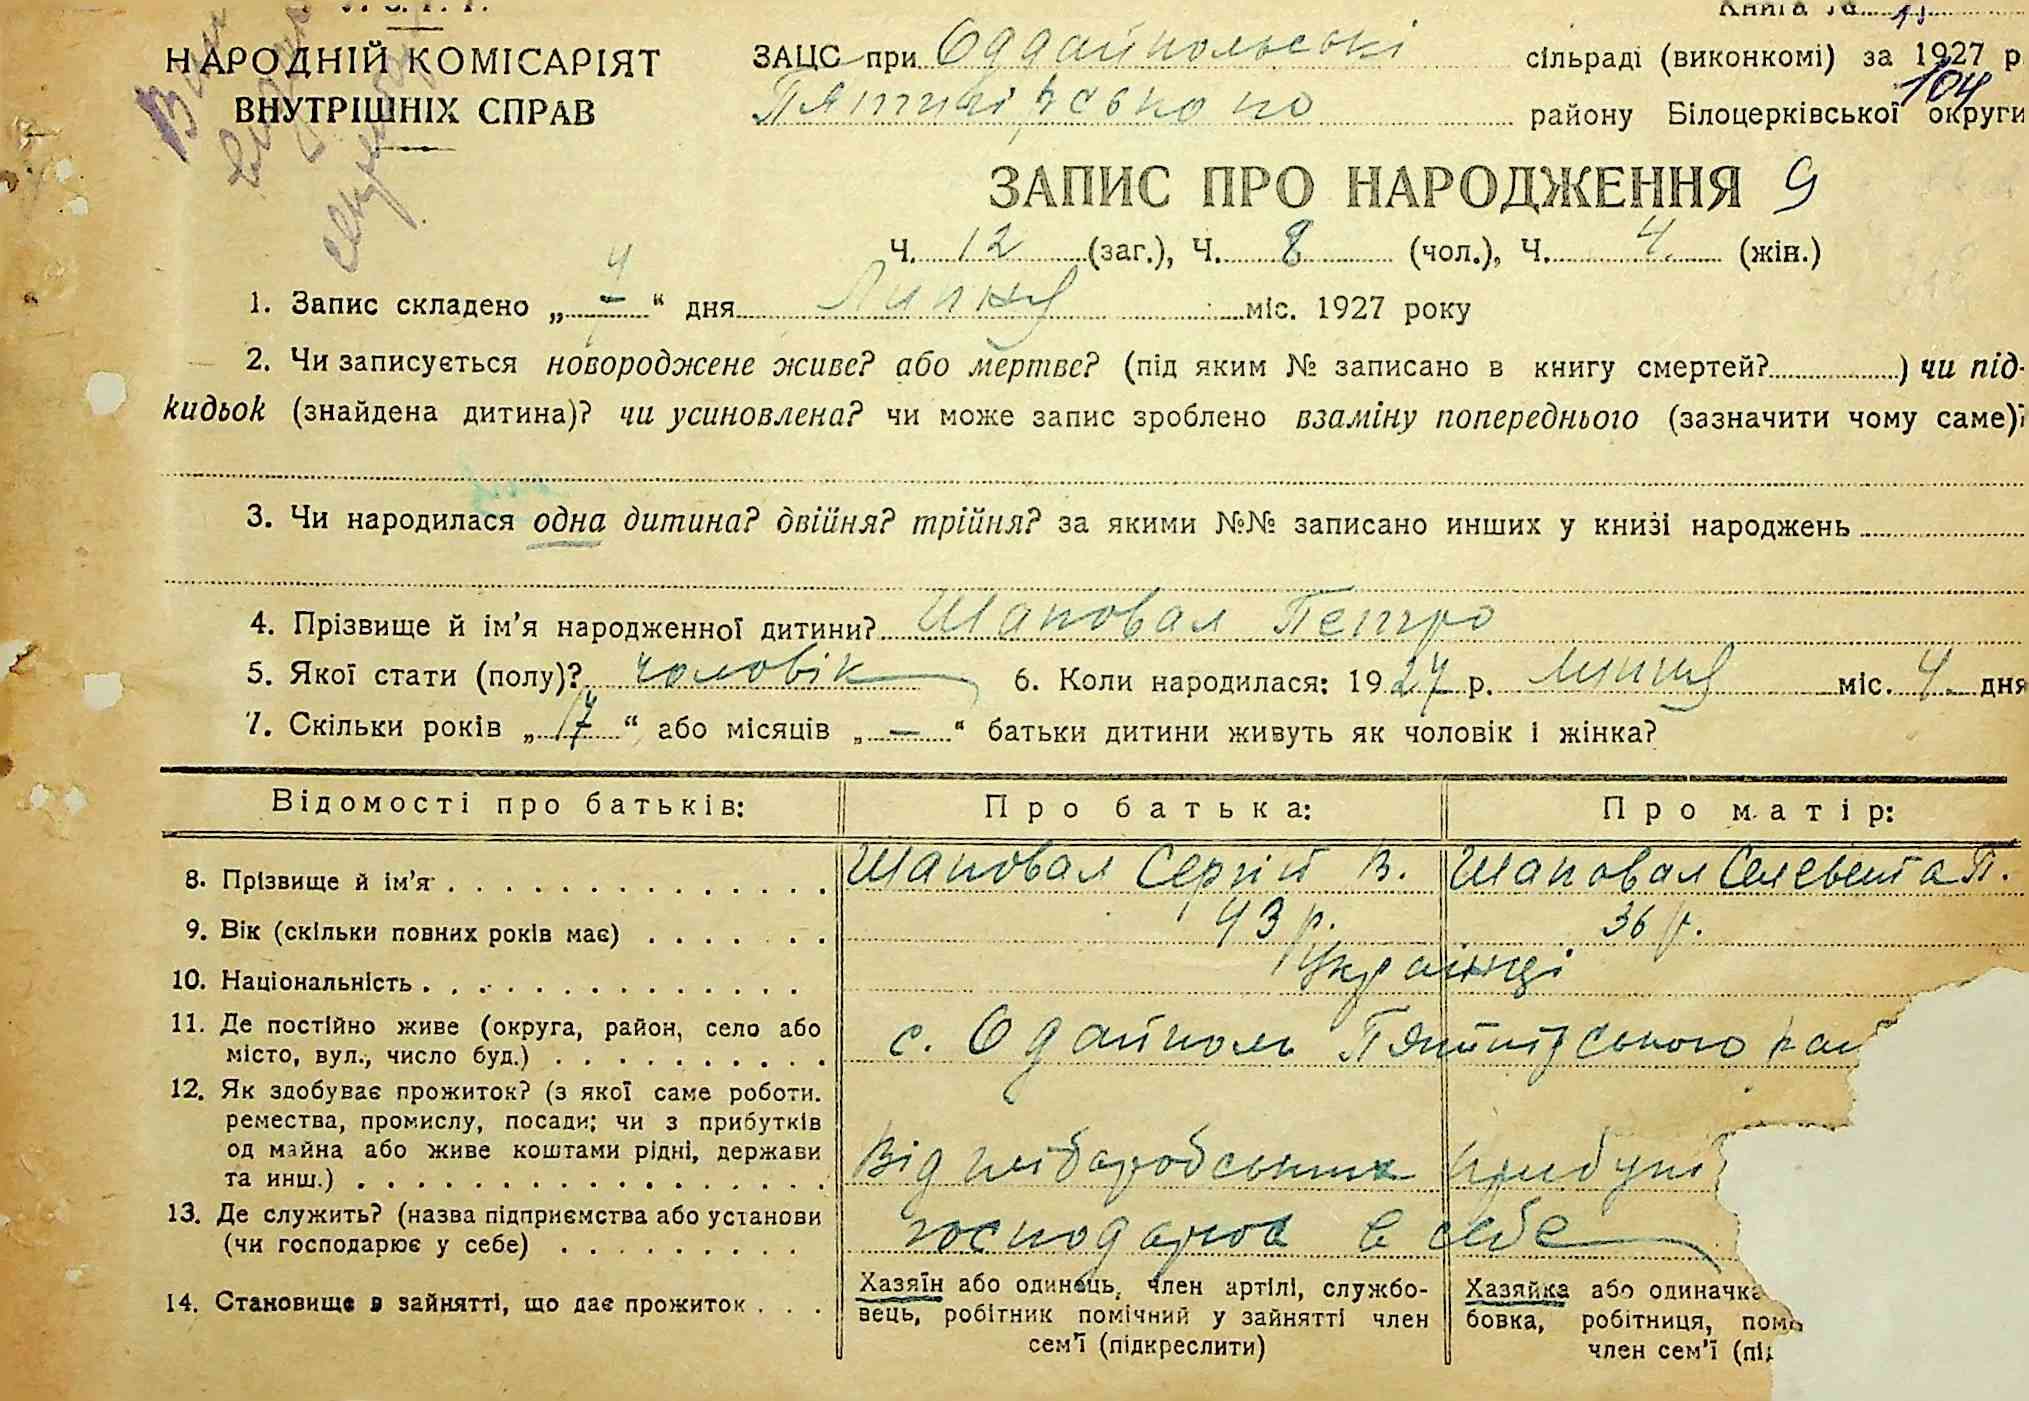 У. С. Р. Р.
Книга №
НАРОДНІЙ КОМІСАРІЯТ
ВНУТРІШНІХ СПРАВ
ЗАЦС при Оддайпольські сільраді (виконкомі) за 1927 р
104
Пятигірського району Білоцерківської округи
ЗАПИС ПРО НАРОДЖЕННЯ 9
Ч. 12 (заг.), Ч. 8 (чол.), Ч. 4. (жін.)
1. Запис складено „ 4 “ дня Липня міс. 1927 року
2. Чи записується новороджене живе? або мертве? (під яким № записано в книгу смертей? ) чи під-
кидьок (знайдена дитина)? чи усиновлена? чи може запис зроблено взаміну попереднього (зазначити чому саме)?
3. Чи народилася одна дитина? двійня? трійня? за якими №№ записано инших у книзі народжень
4. Прізвище й ім’я народженної дитини? Шаповал Петро
5. Якої стати (полу)? чоловік 6. Коли народилася: 1927 р. липня міс. 4. дня
7. Скільки років „ 17 “ або місяців „ — “ батьки дитини живуть як чоловік і жінка?
Відомості про батьків: Про батька: Про матір:
8. Прізвище й ім’я Шаповал Сергій В. Шаповал Селевета П.
9. Вік (скільки повних років має) 43 р. 36 р.
10. Національність Українці
11. Де постійно живе (округа, район, село або
місто, вул., число буд.) с. Одайполь Пятигірського рай
12. Як здобуває прожиток? (з якої саме роботи.
ремества, промислу, посади; чи з прибутків
од майна або живе коштами рідні, держави
та инш.) Від хліборобських прибутк
13. Де служить? (назва підприємства або установи
(чи господарює у себе) господарює в себе
14. Становище в зайнятті, що дає прожиток
Хазяїн або одинець, член артілі, службо-
вець, робітник помічний у зайнятті член
сем’ї (підкреслити)
Хазяйка або одиначка
бовка, робітниця, пом
член сем’ї (під